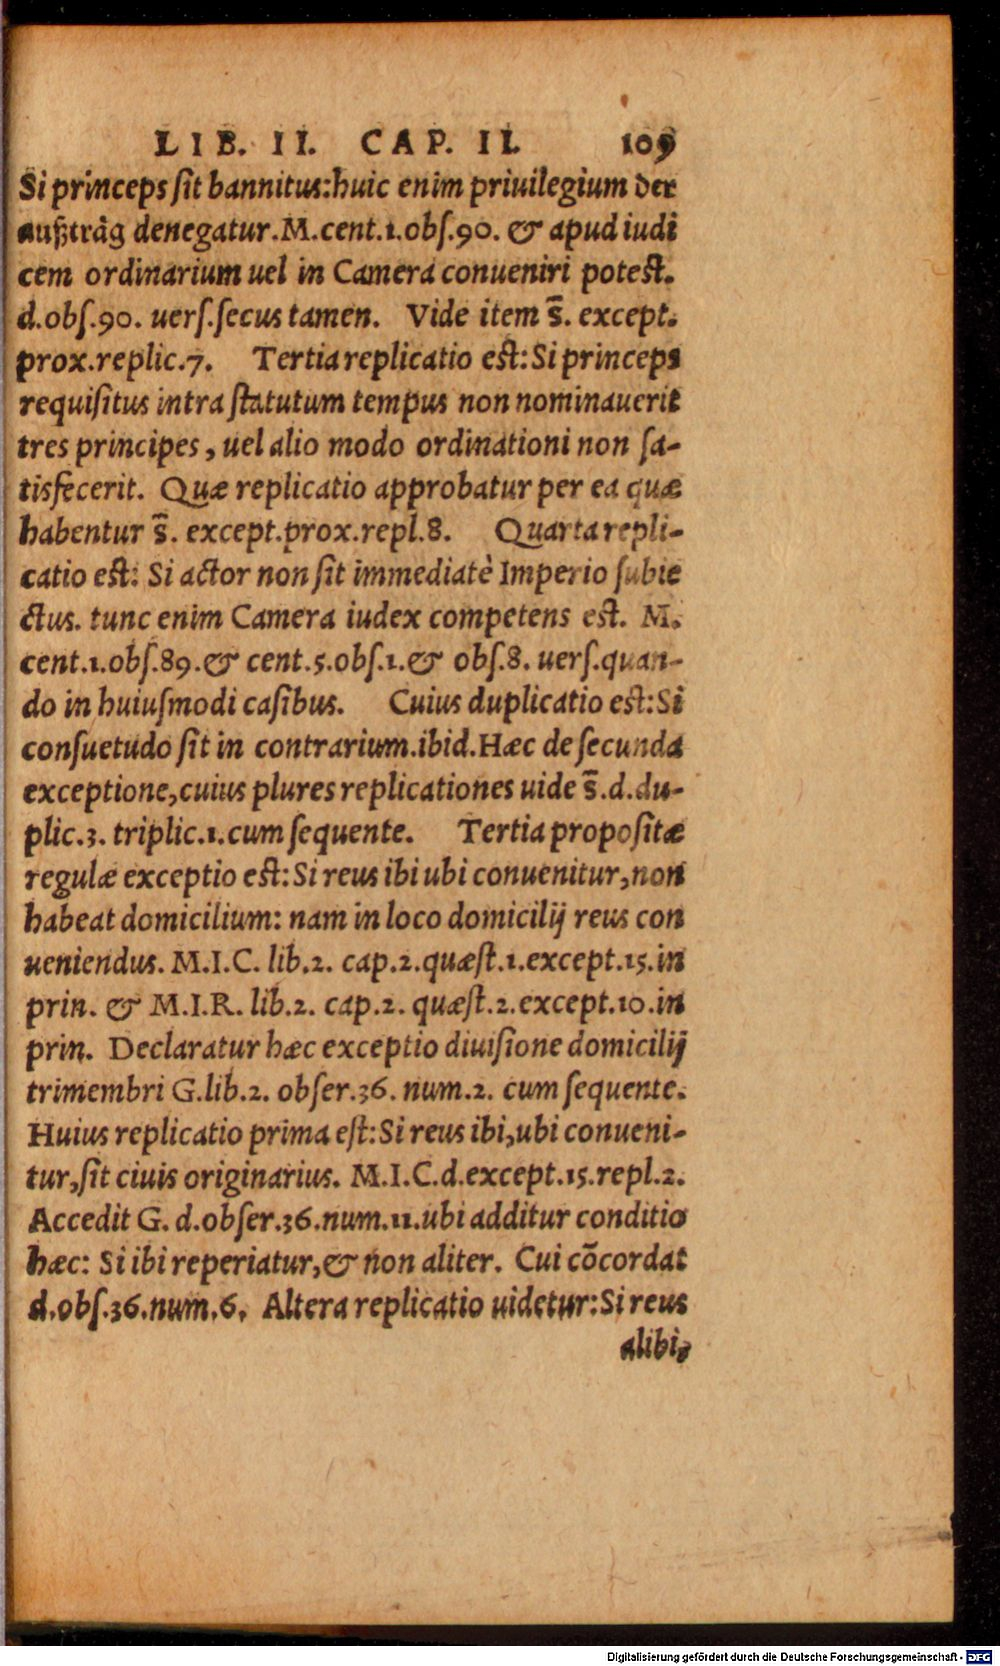 LIB. II. CAP. II. 109
Si princeps ſit bannitus: huic enim priuilegium der
außträg denegatur. M. cent. 1. obſ. 90. & apud iudi
cem ordinarium uel in Camera conueniri poteſt.
d. obſ. 90. uerſ. ſecus tamen. Vide item s̄. except.
prox. replic. 7. Tertia replicatio eſt: Si princeps
requiſitus intra ſtatutum tempus non nominauerit
tres principes, uel alio modo ordinationi non ſa-
tisfecerit. Quæ replicatio approbatur per ea quæ
habentur s̄. except. prox. repl. 8. Quarta repli-
catio eſt: Si actor non ſit immediatè Imperio ſubie
ctus. tunc enim Camera iudex competens eſt. M.
cent. 1. obſ. 89. & cent. 5. obſ. 1. & obſ. 8. uerſ. quan-
do in huiuſmodi caſibus. Cuius duplicatio eſt: Si
conſuetudo ſit in contrarium. ibid. Hæc de ſecunda
exceptione, cuius plures replicationes uide s̄. d. du-
plic. 3. triplic. 1. cum ſequente. Tertia propoſitæ
regulæ exceptio eſt: Si reus ibi ubi conuenitur, non
habeat domicilium: nam in loco domicilij reus con
ueniendus. M. I. C. lib. 2. cap. 2. quæſt. 1. except. 15. in
prin. & M. I. R. lib. 2. cap. 2. quæſt. 2. except. 10. in
prin. Declaratur hæc exceptio diuiſione domicilij
trimembri G. lib. 2. obſer. 36. num. 2. cum ſequente.
Huius replicatio prima eſt: Si reus ibi, ubi conueni-
tur, ſit ciuis originarius. M. I. C. d. except. 15. repl. 2.
Accedit G. d. obſer. 36. num. 11. ubi additur conditio
hæc: Si ibi reperiatur, & non aliter. Cui cõcordat
d. obſ. 36. num. 6. Altera replicatio uidetur: Si reus
alibi,
Digitalisierung gefördert durch die Deutsche Forschungsgemeinschaft - DFG